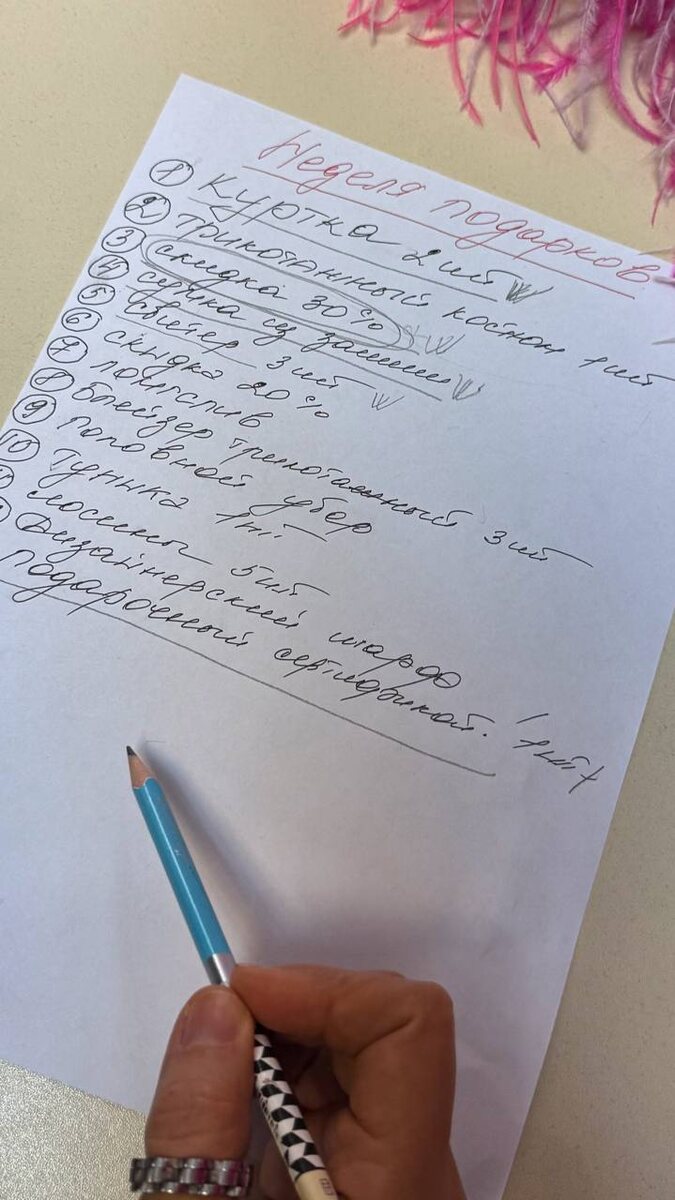 Неделя подарков
① Куртка 2 шт
② Трикотажный костюм 1 шт
③ скидка 30%
④ сумка из замши
⑤ свитер 3 шт
⑥ скидка 20%
⑦ лонгслив
⑧ блейзер трикотажный 3 шт
⑨ головной убор
10 Туника 1 шт
11 лосины 5 шт
Дизайнерский шарф 1 шт +
подарочный сертификат.